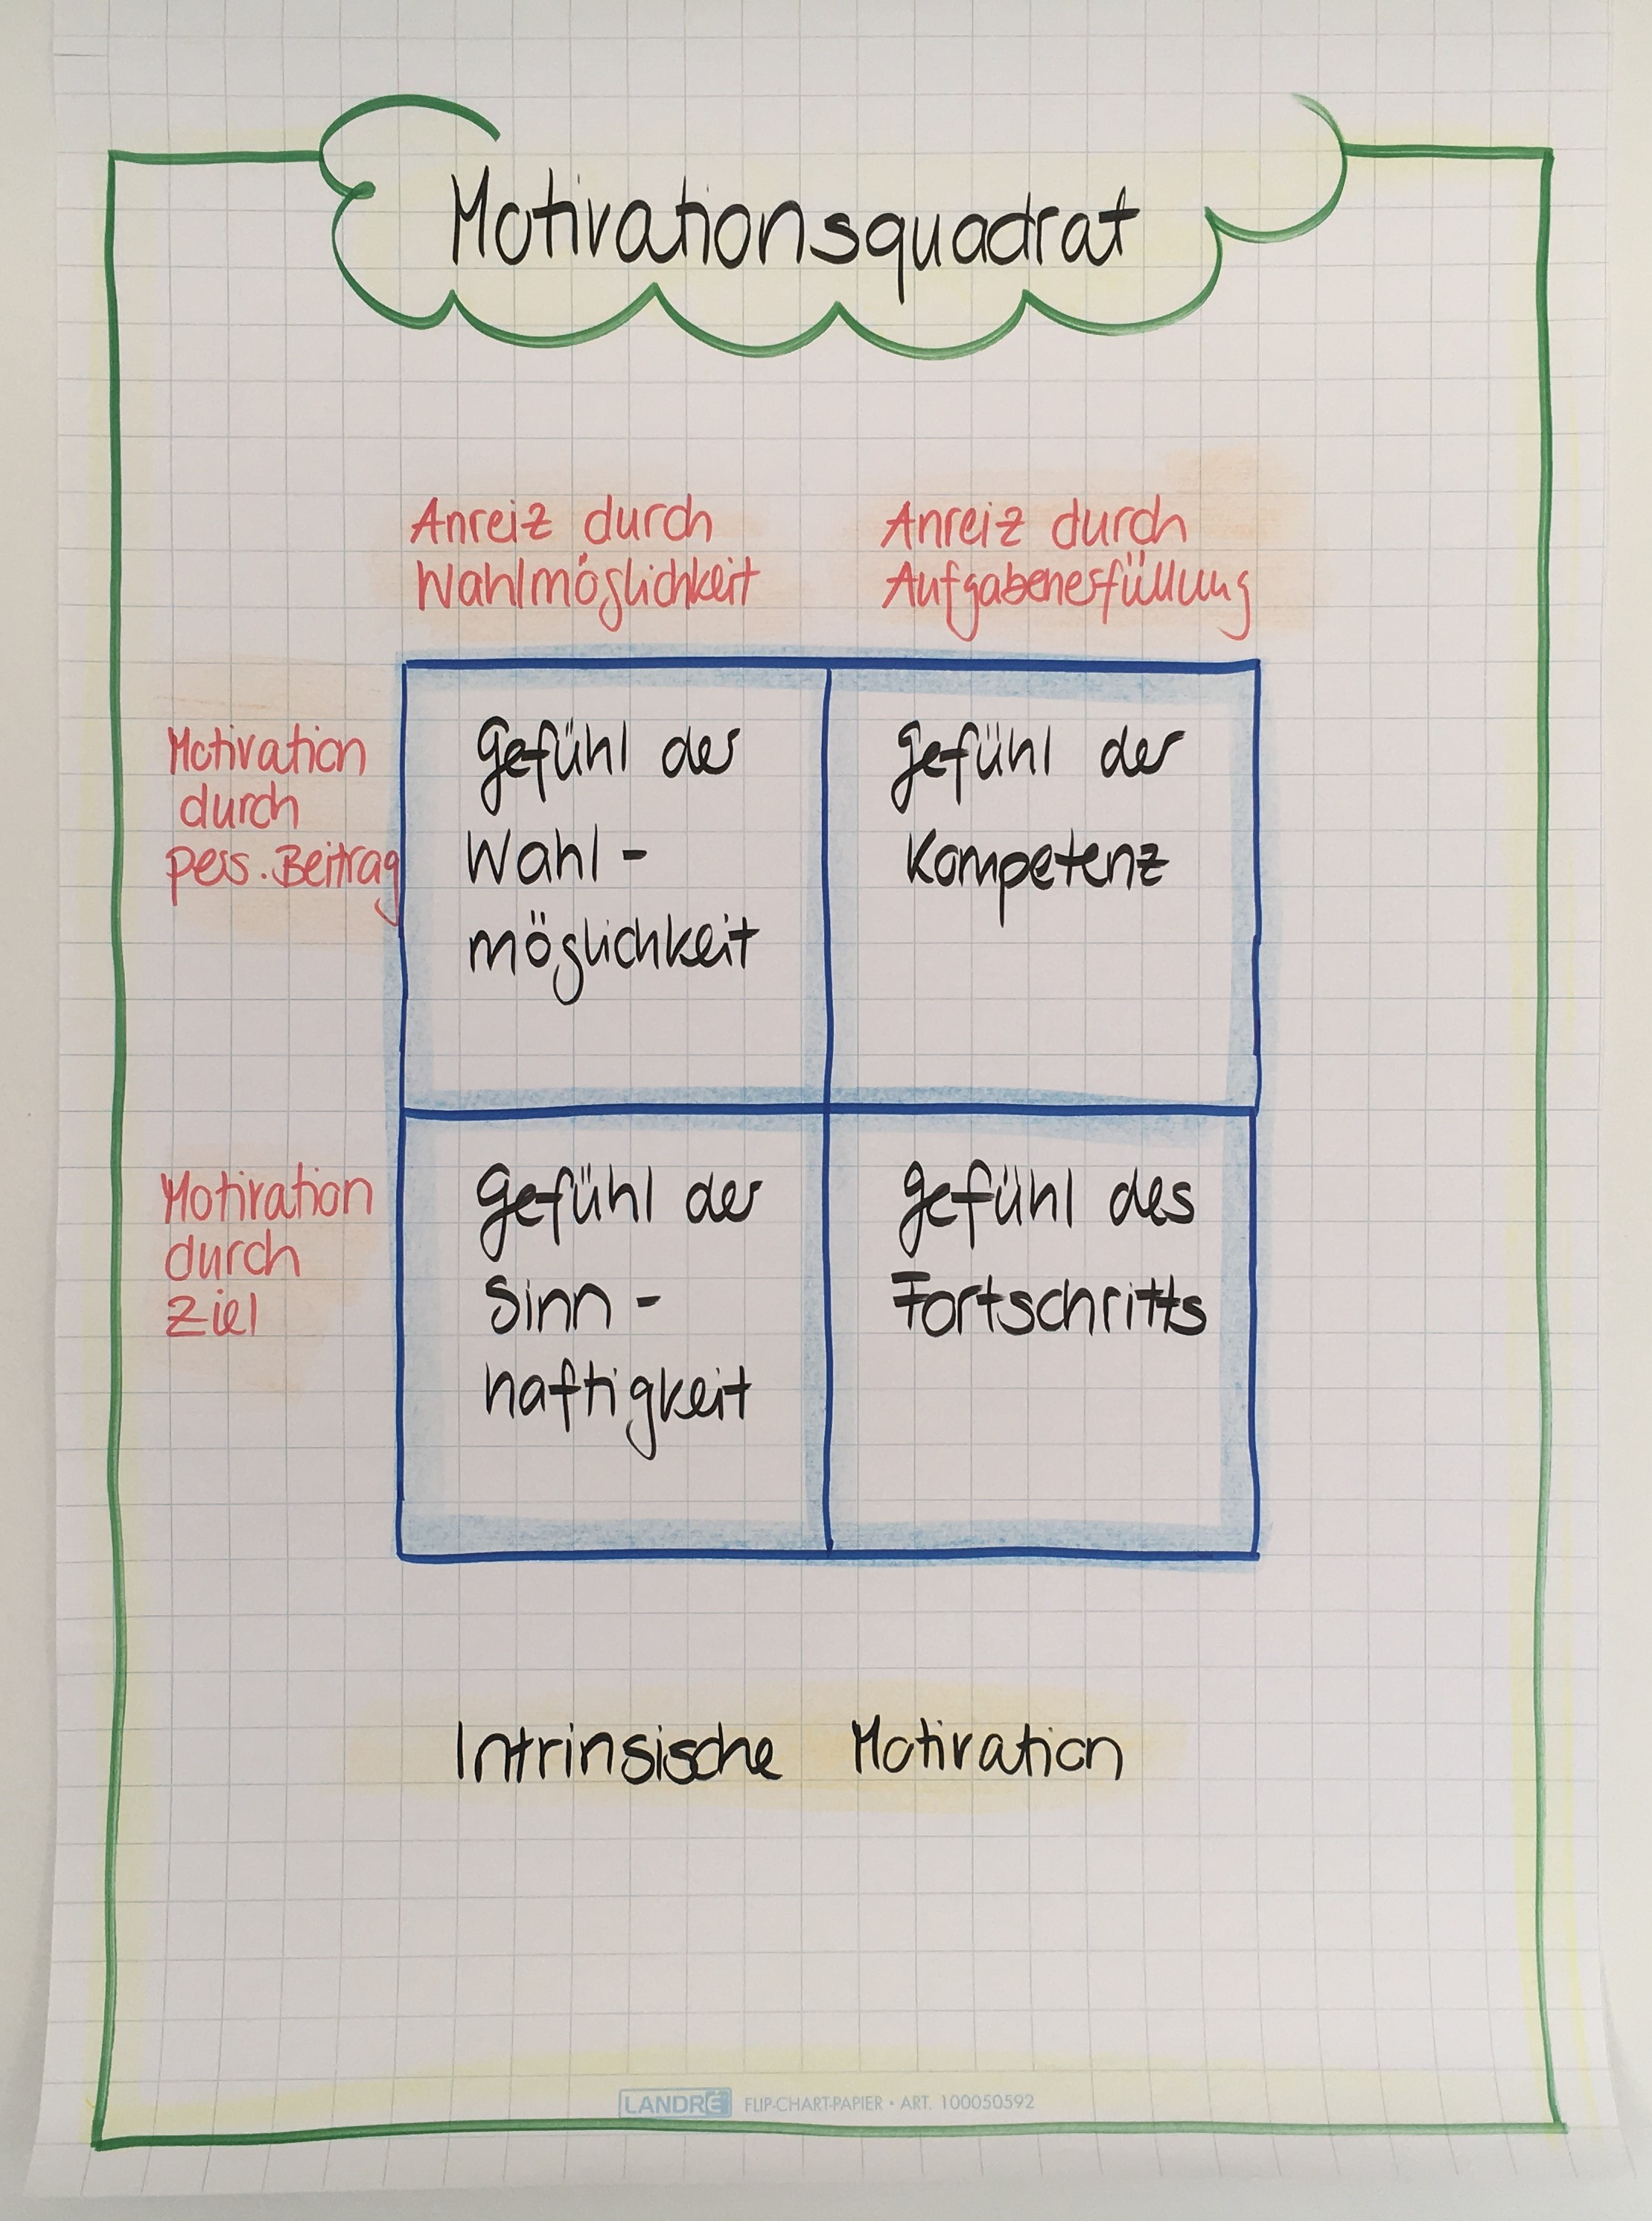 Motivationsquadrat
Anreiz durch
Wahlmöglichkeit
Anreiz durch
Aufgabenerfüllung
Motivation
durch
pers. Beitrag
Gefühl der
Wahl-
möglichkeit
Gefühl der
Kompetenz
Motivation
durch
Ziel
Gefühl der
Sinn-
haftigkeit
Gefühl des
Fortschritts
Intrinsische Motivation
LANDRÉ FLIP-CHART-PAPIER • ART. 100050592